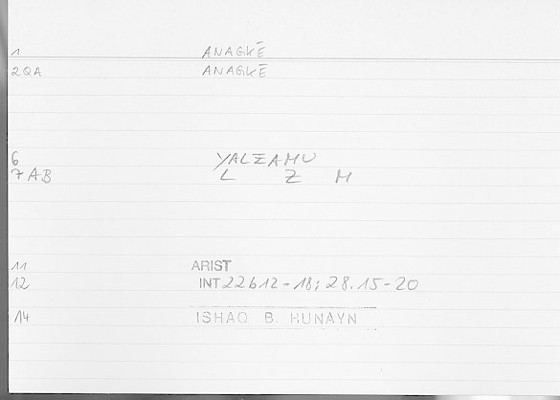 1 ANAGKĒ
2QA ANAGKĒ
6 YALZAMU
7AB L Z M
11 ARIST
12 INT 22b12-18; 28.15-20
14 ISHAQ B. HUNAYN